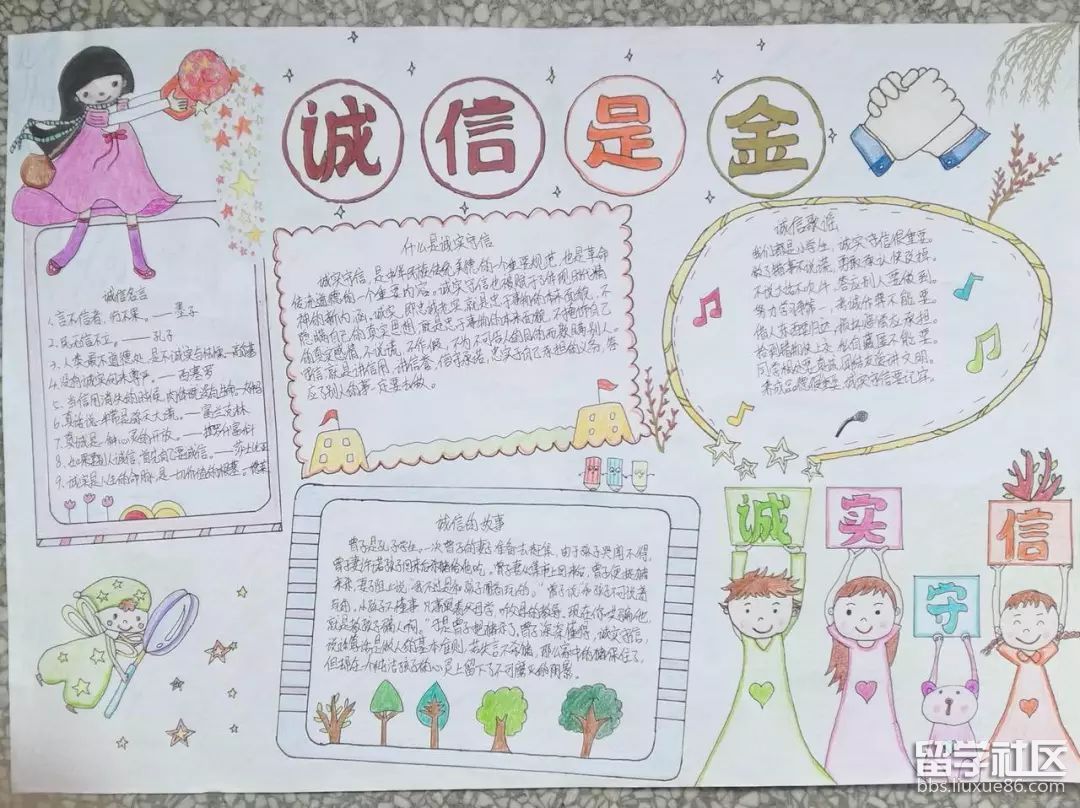 诚信是金
诚信名言
1.言不信者,行不果。——墨子
2.民无信不立。——孔子
3.人类最不道德处,是不诚实与怯懦
4.没有诚实何来尊严。——西塞罗
5.当信用消失的时候,肉体就没有生命
6.真话说一半常是弥天大谎。——富兰克林
7.真诚是一种心灵的开放。——拉罗什富科
8.如果要别人诚信,首先自己要诚信。——莎士比亚
9.诚实是人生的命脉,是一切价值的根基。
什么是诚实守信
诚实守信,是中华民族传统美德的一个重要规范,也是革命
传统道德的一个重要内容。诚实守信也被赋予了体现时代精
神的新内涵。诚实,即忠诚老实,就是忠于事物的本来面貌,不
隐瞒自己的真实思想,就是忠于事物的本来面貌,不掩饰自己
的真实感情,不说谎,不作假,不为不可告人的目的而欺瞒别人。
守信,就是讲信用,讲信誉,信守承诺,忠实于自己承担的义务,答
应了别人的事一定要去做。
诚信歌谣
我们都是小学生,诚实守信很重要。
做了错事不说谎,勇敢承认快改掉。
不说大话不吹牛,答应别人要做到。
努力学习得第一,考试作弊不能要。
借人东西要归还,损坏赔偿应承担。
拾到
同学相处
养成品德
诚信的故事
曾子是孔子学生。一次曾子的妻子准备去赶集,由于孩子哭闹不已,
曾子妻许诺孩子回来后杀猪给他吃。曾子妻从集市上回来后,曾子便捉猪
来杀,妻子阻止说:“我不过是和孩子闹着玩的。”曾子说:“和孩子不可说着
玩的。小孩子不懂事,凡事跟着父母学,听父母的教导。现在你哄骗他,
就是教孩子骗人啊。”于是曾子把猪杀了。曾子深深懂得,诚实守信,
说话算话是做人的基本准则,若失言不杀猪,那么家中的猪保住了,
但却在一个纯洁孩子的心灵上留下了不可磨灭的阴影。
诚
实
守
信
留学社区
bbs.liuxue86.com